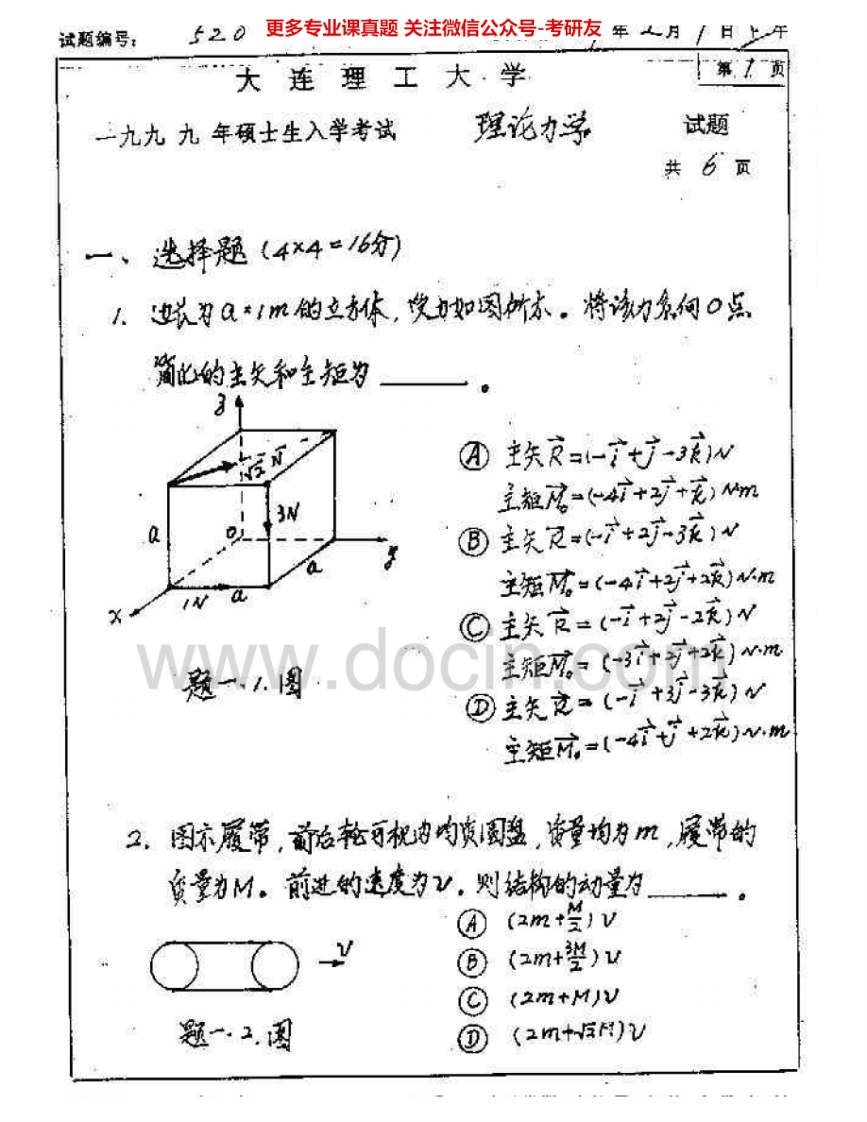 更多专业课真题 关注微信公众号-考研友
试题编号: 520 年 2月 1日 上午
大连理工大学 第 1 页
一九九 九 年硕士生入学考试 理论力学 试题
共 6 页
一、选择题 (4×4=16分)
1. 边长为 a=1m 的立方体,受力如图所示。将该力系向O点
简化的主矢和主矩为______。
z
√2 N
3N
a
O
y
a
x
1N
a
题一.1.图
Ⓐ 主矢R⃗=(-i⃗+j⃗-3k⃗)N
主矩M⃗₀=(-4i⃗+2j⃗+k⃗)N·m
Ⓑ 主矢R⃗=(-i⃗+2j⃗-3k⃗)N
主矩M⃗₀=(-4i⃗+2j⃗+2k⃗)N·m
Ⓒ 主矢R⃗=(-i⃗+2j⃗-2k⃗)N
主矩M⃗₀=(-3i⃗+2j⃗+2k⃗)N·m
Ⓓ 主矢R⃗=(-i⃗+3j⃗-3k⃗)N
主矩M⃗₀=(-4i⃗+j⃗+2k⃗)N·m
www.docin.com
2. 图示履带,前后轮可视为均质圆盘,质量均为m,履带的
质量为M。前进的速度为v,则结构的动量为______。
v
题一.2.图
Ⓐ (2m+M/2)v
Ⓑ (2m+3M/2)v
Ⓒ (2m+M)v
Ⓓ (2m+√2M)v